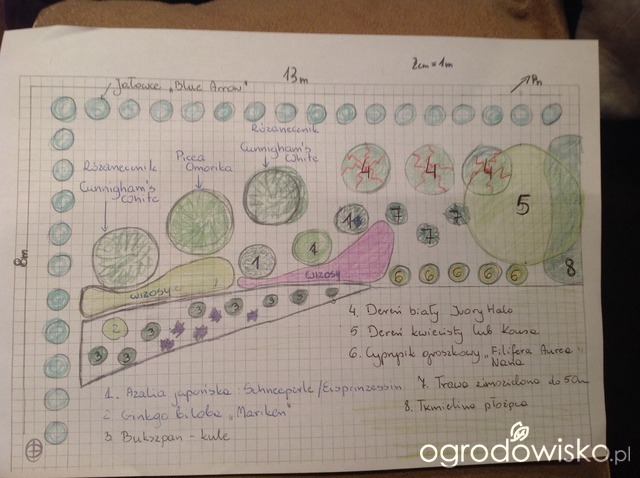 13m
2cm = 1m
Pn
Jałowce „Blue Arrow"
Różanecznik
Cunnigham's
White
Picea
Omorika
Różanecznik
Cunnigham's
White
4 4 4
5
8m
1 7 7
7
1 4
WRZOSY
WRZOSY
6 6 6 6 6
8
3 3 3 3 3
2 3
3 3 3
4. Dereń biały Ivory Halo
5 Dereń kwiecisty lub Kousa
6. Cyprysik groszkowy „Filifera Aurea"
Nana
7. Trawa zimozielona do 50cm
8. Tkmielina płożąca
1. Azalia japońska: Schneeperle/Eisprinzessin
2 Ginkgo biloba „Mariken"
3 Bukszpan - kule
ogrodowisko.pl